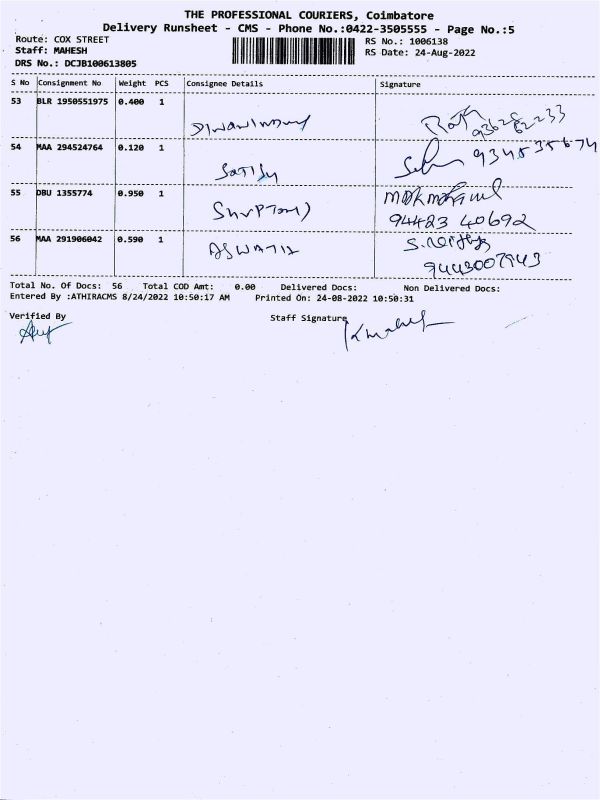 THE PROFESSIONAL COURIERS, Coimbatore
Delivery Runsheet - CMS - Phone No.:0422-3505555 - Page No.:5
Route: COX STREET
RS No.: 1006138
Staff: MAHESH
RS Date: 24-Aug-2022
DRS No.: DCJB100613805
S No Consignment No Weight PCS Consignee Details Signature
53 BLR 1950551975 0.400 1
54 MAA 294524764 0.120 1 Satish
55 DBU 1355774 0.950 1
94423 40692
56 MAA 291906042 0.590 1 ASWATIX
9443007943
Total No. Of Docs: 56 Total COD Amt: 0.00 Delivered Docs: Non Delivered Docs:
Entered By :ATHIRACMS 8/24/2022 10:50:17 AM Printed On: 24-08-2022 10:50:31
Verified By Staff Signature